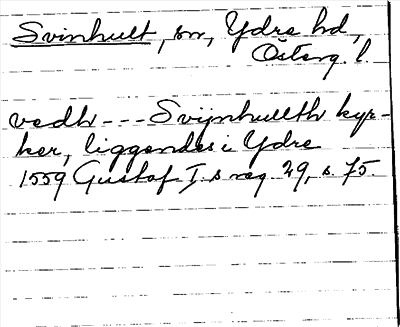 Svinhult, sn, Ydre hd,
Österg. l.
vedh --- Svijnhullth kyr-
ker, liggendes i Ydre
1559 Gustaf I:s reg. 29, s. 75.